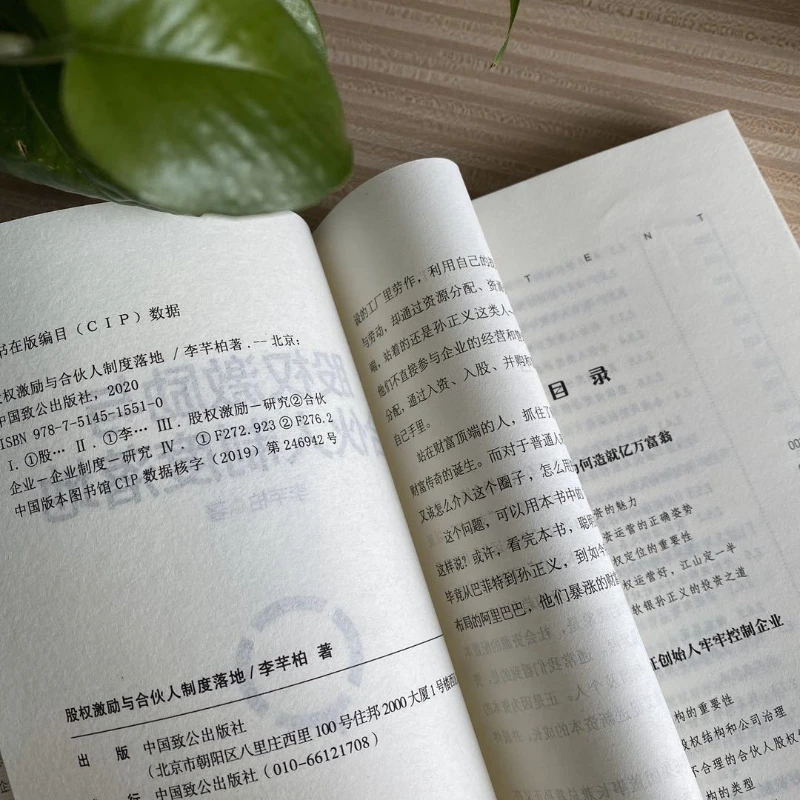 书在版编目（CIP）数据
股权激励与合伙人制度落地 / 李芊柏著. -- 北京：
中国致公出版社，2020
ISBN 978-7-5145-1551-0
Ⅰ. ①股… Ⅱ. ①李… Ⅲ. 股权激励－研究②合伙
企业－企业制度－研究 Ⅳ. ①F272.923②F276.2
中国版本图书馆CIP数据核字（2019）第246942号
股权激励与合伙人制度落地 / 李芊柏 著
出 版 中国致公出版社
（北京市朝阳区八里庄西里100号住邦2000大厦1号楼西区
行 中国致公出版社（010-66121708）
的工厂里劳作，利用自己的
与劳动，却通过资源分配、资
端，站着的还是孙正义这类人
他们不直接参与企业的经营和
分配，通过入资、入股、并购和
自己手里。
站在财富顶端的人，抓住了
财富传奇的诞生。而对于普通人
又该怎么介入这个圈子，怎么用
这个问题，可以用本书中的
这样说？或许，看完本书，聪明
毕竟从巴菲特到孙正义，到如今
布局的阿里巴巴，他们暴涨的财
T E N T
目 录
为何造就亿万富翁
资的魅力
资运营的正确姿势
权定位的重要性
权运营好，江山定一半
软银孙正义的投资之道
证创始人牢牢控制企业
构的重要性
股权结构和公司治理
不合理的合伙人股权
构的类型